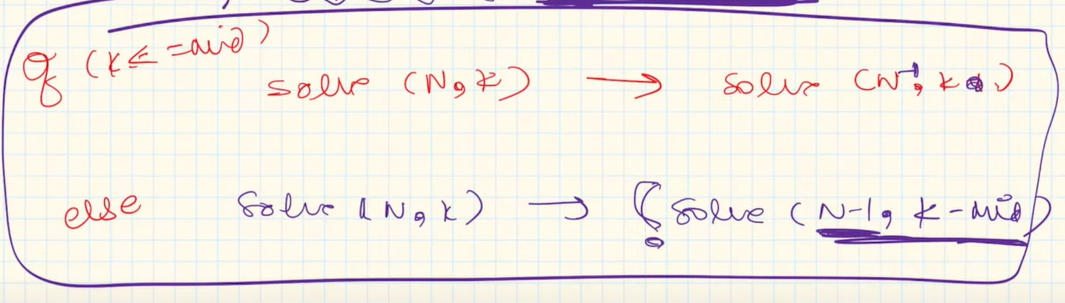 if (K <= mid)
solve (N, K) → solve (N-1, K)
else solve (N, K) → ! solve (N-1, K-mid)